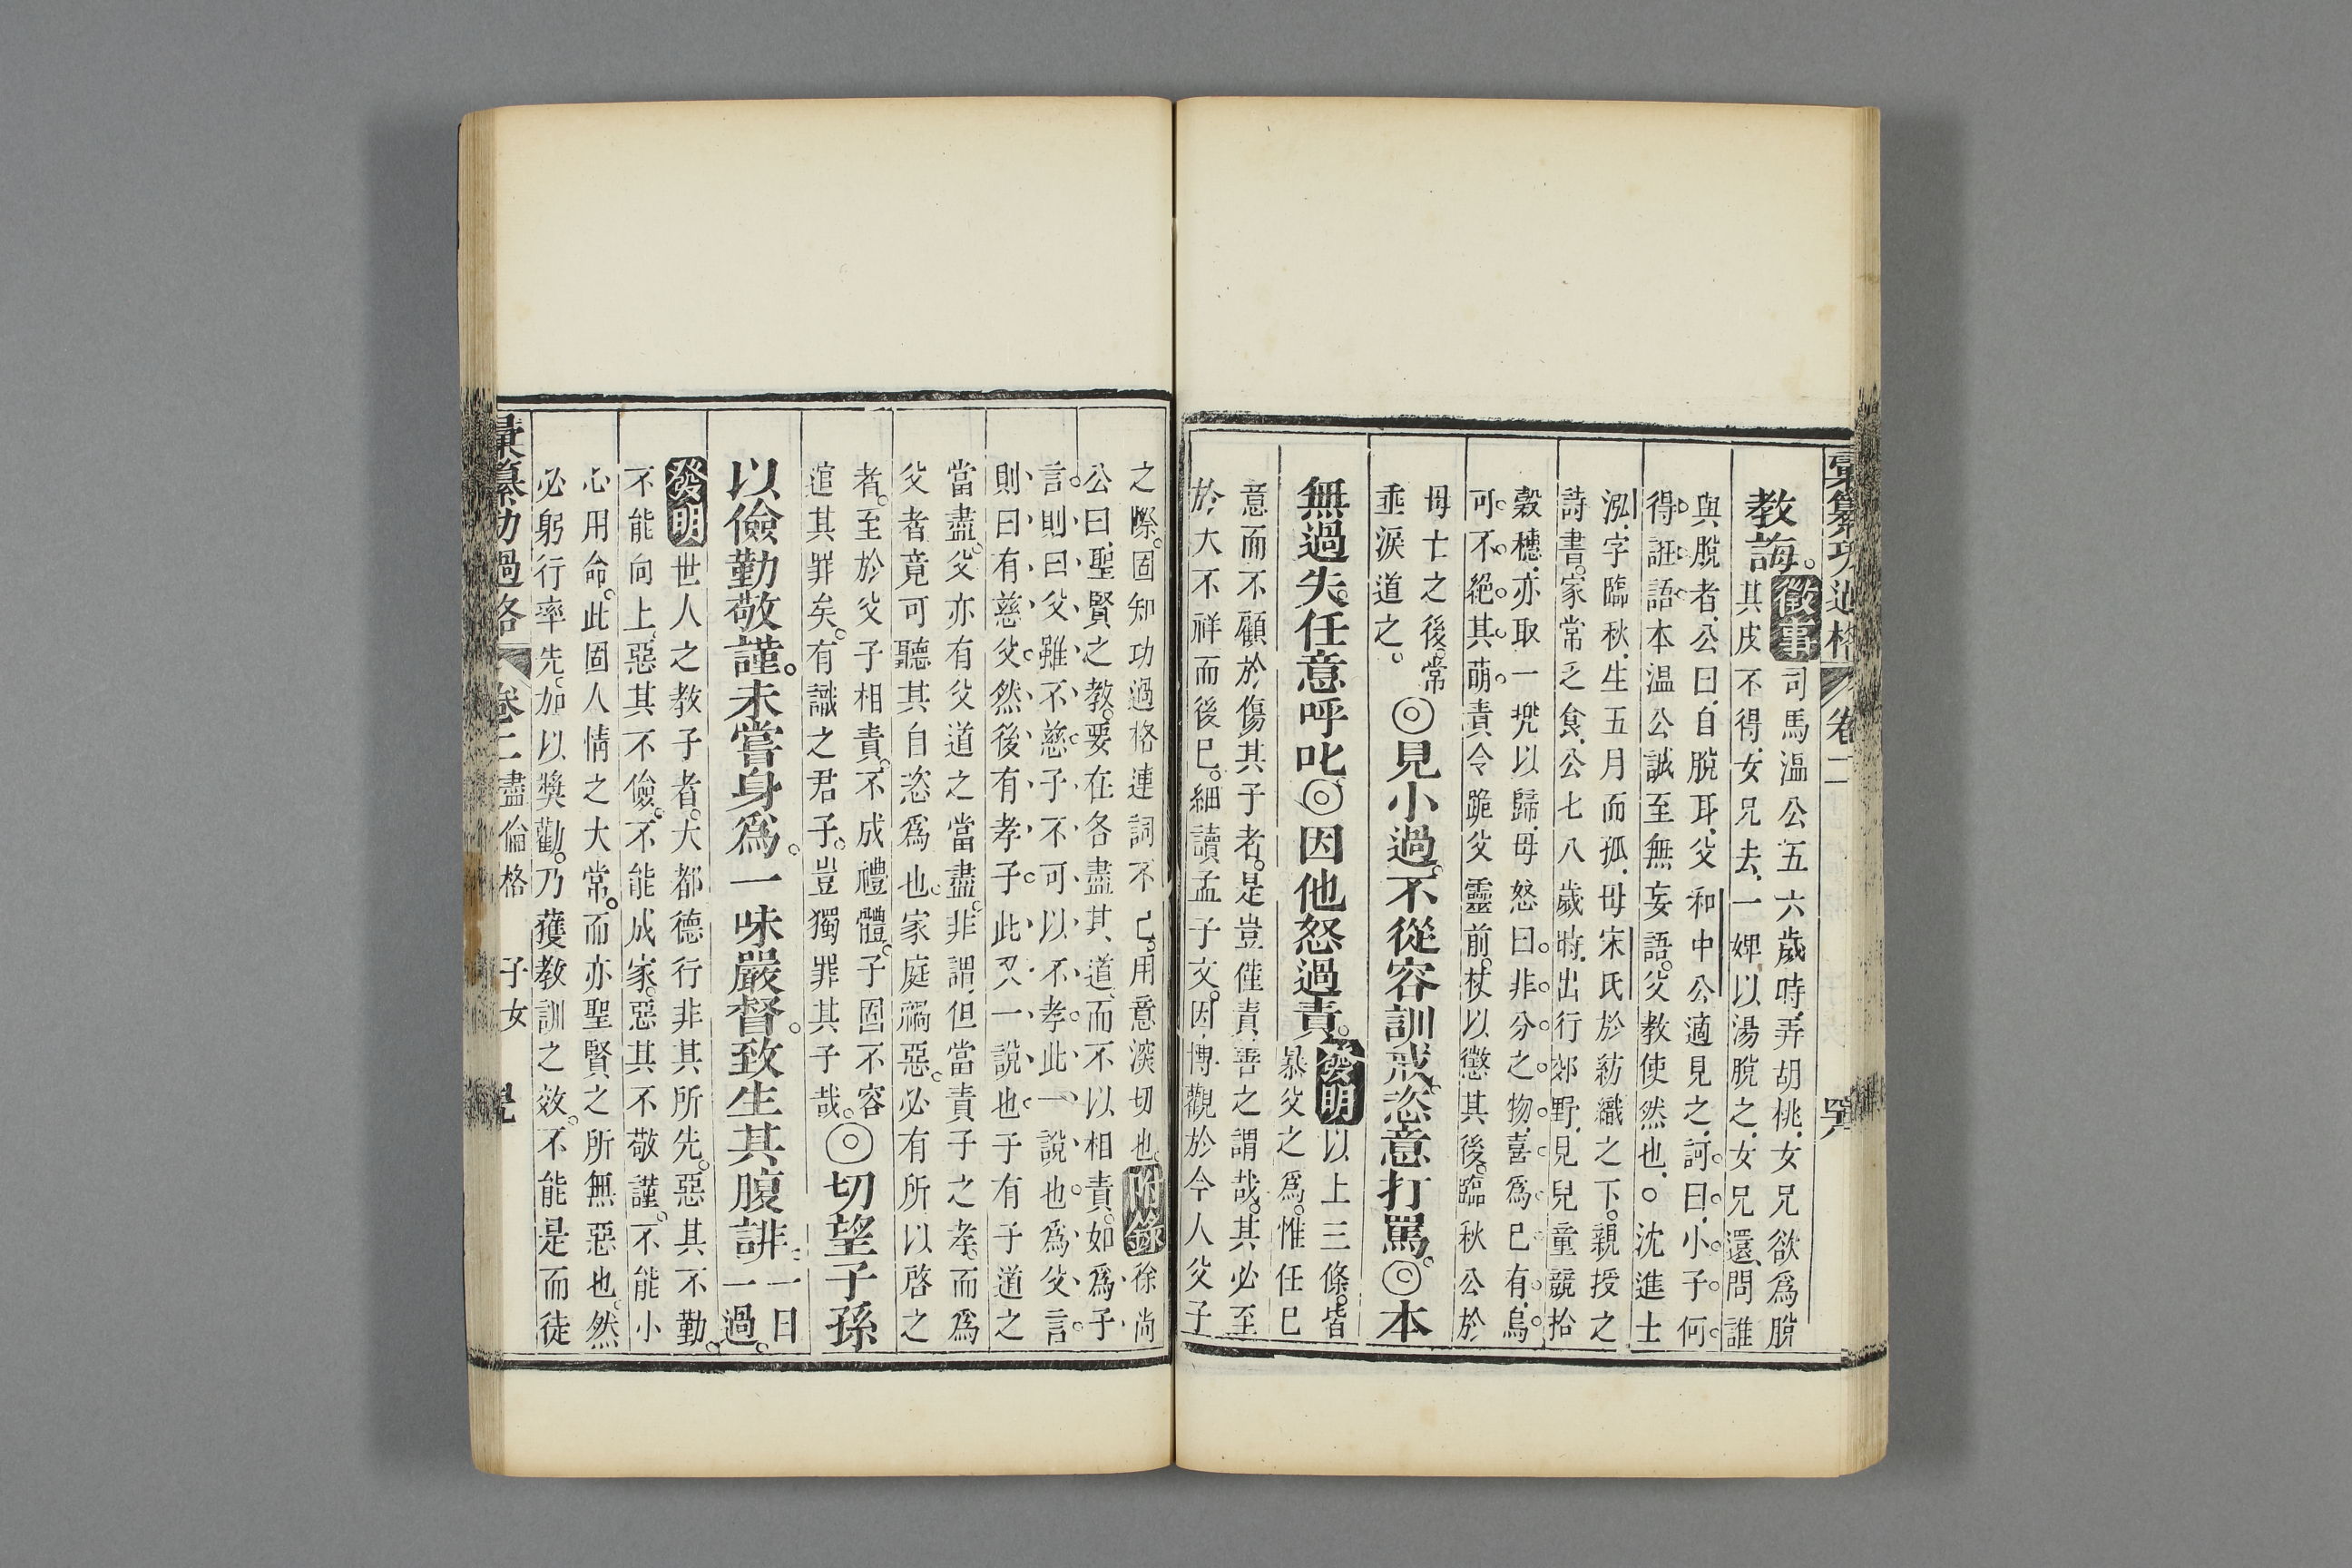 彙纂功過格 卷二
教誨。徵事 司馬溫公五六歲時弄胡桃女兄欲爲脫
其皮不得女兄去一婢以湯脫之女兄還問誰
與脫者公曰自脫耳父和中公適見之訶曰小子何
得誑語本溫公誠至無妄語父教使然也○沈進士
泓字臨秋生五月而孤母宋氏於紡織之下親授之
詩書家常乏食公七八歲時出行郊野見兒童競拾
穀穗亦取一兜以歸母怒曰非分之物喜爲已有烏
可不絕其萌責令跪父靈前杖以懲其後臨秋公於
母亡之後常
垂淚道之。◎見小過。不從容訓戒恣意打罵。◎本
無過失任意呼叱◎因他怒過責。發明 以上三條皆
暴父之爲惟任已
意而不顧於傷其子者是豈僅責善之謂哉其必至
於大不祥而後已細讀孟子文因博觀於今人父子
之際固知功過格連詞不已用意深切也附錄 徐尚
公曰聖賢之教要在各盡其道而不以相責如爲子
言則曰父雖不慈子不可以不孝此一說也爲父言
則曰有慈父然後有孝子此又一說也于有子道之
當盡父亦有父道之當盡非謂但當責子之孝而爲
父者竟可聽其自恣爲也家庭禍惡必有所以啓之
者至於父子相責不成禮體子固不容
逭其罪矣有識之君子豈獨罪其子哉◎切望子孫
以儉勤敬謹。未嘗身爲。一味嚴督。致生其腹誹 一日
一過
發明 世人之教子者大都德行非其所先惡其不勤
不能向上惡其不儉不能成家惡其不敬謹不能小
心用命此固人情之大常而亦聖賢之所無惡也然
必躬行率先加以獎勸乃獲教訓之效不能是而徒
彙纂功過格 卷二 盡倫格 子女